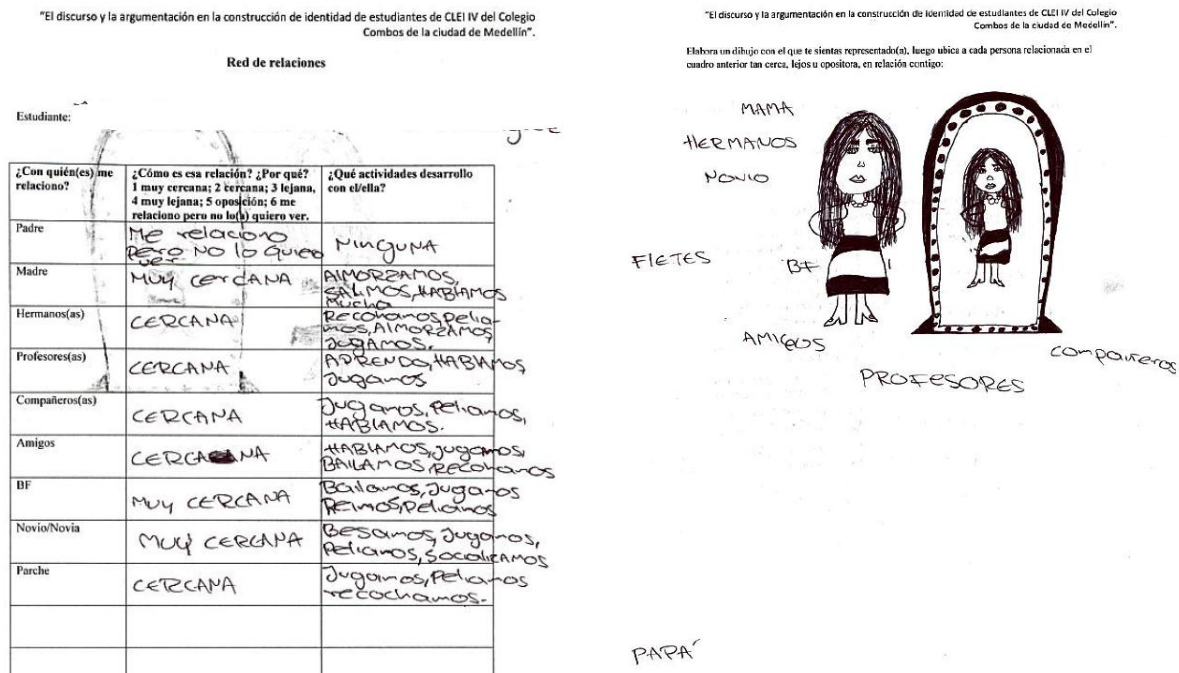 "El discurso y la argumentación en la construcción de identidad de estudiantes de CLEI IV del Colegio
Combos de la ciudad de Medellín".
Red de relaciones
Estudiante:
¿Con quién(es) me
relaciono?
¿Cómo es esa relación? ¿Por qué?
1 muy cercana; 2 cercana; 3 lejana,
4 muy lejana; 5 oposición; 6 me
relaciono pero no lo(a) quiero ver.
¿Qué actividades desarrollo
con el/ella?
Padre
Me relaciono
Pero NO lo Quieo
ver.
NINGUNA
Madre
MUY CERCANA
AlMORZAMOS,
SALIMOS, HABlAMOS
Mucho
Hermanos(as)
CERCANA
Recohamos, Pelia-
mos, AlMORZAMOS,
JUGAMOS.
Profesores(as)
CERCANA
APRENDO, HABlAMOS,
Jugamos
Compañeros(as)
CERCANA
Jugamos, Peliamos,
HABlAMOS.
Amigos
CERCANA
HABlAMOS, jugamos,
BAILAMOS, RECohamos
BF
MUY CERCANA
Bailamos, Jugamos
REimos, Peliamos
Novio/Novia
MUY CERCANA
Besamos, Jugamos,
Peliamos, SocializAMOS
Parche
CERCANA
Jugamos, Peliamos
recochamos.
"El discurso y la argumentación en la construcción de identidad de estudiantes de CLEI IV del Colegio
Combos de la ciudad de Medellín".
Elabora un dibujo con el que te sientas representado(a), luego ubica a cada persona relacionada en el
cuadro anterior tan cerca, lejos u opositora, en relación contigo:
MAMA
HERMANOS
NOVIO
FIETES
BF
AMIGOS
compañeros
PROFESORES
PAPÁ